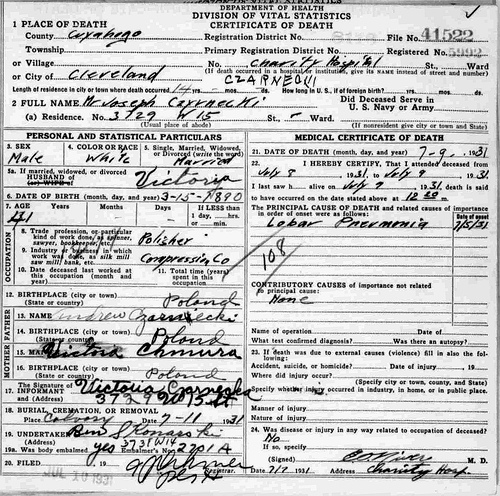 DEPARTMENT OF HEALTH
DIVISION OF VITAL STATISTICS
CERTIFICATE OF DEATH
1 PLACE OF DEATH
County Cuyahoga Registration District No. File No. 41522
Township Primary Registration District No. Registered No. 5992
or Village No. Charity Hospital St., Ward
or City of Cleveland (If death occurred in a hospital or institution, give its NAME instead of street and number)
Length of residence in city or town where death occurred 14 yrs. mos. ds. How long in U. S., if of foreign birth? yrs. mos. ds.
2 FULL NAME Joseph
Did Deceased Serve in U. S. Navy or Army
(a) Residence. No. 3729 W 15 St.,
(Usual place of abode) (If nonresident give city or town and State)
PERSONAL AND STATISTICAL PARTICULARS
3. SEX 4. COLOR OR RACE 5. Single, Married, Widowed, or Divorced (write the word)
Male White Married
5a. If married, widowed, or divorced
HUSBAND of
(or) WIFE of Victoria
6. DATE OF BIRTH (month, day, and year) 3-15-1890
7. AGE Years Months Days If LESS than
41 1 day, hrs.
or min.
OCCUPATION
8. Trade, profession, or particular kind of work done, as spinner, sawyer, bookkeeper, etc. Polisher
9. Industry or business in which work was done, as silk mill, saw mill, bank, etc. Compression Co
10. Date deceased last worked at this occupation (month and year)
11. Total time (years) spent in this occupation
12. BIRTHPLACE (city or town) Poland
(State or country)
FATHER
13. NAME Andrew Czarniecki
14. BIRTHPLACE (city or town) Poland
(State or country)
MOTHER
15. Victoria Chmura
16. BIRTHPLACE (city or town) Poland
(State or country)
The Signature of
17. INFORMANT Victoria
and (Address) 3729 W 15 St
18. BURIAL, CREMATION, OR REMOVAL
Place Calvary Date 7-11 1931
19. UNDERTAKER
(Address) 3738 W 14
19a. Was body embalmed yes Embalmer's No. 2291A
20. FILED 19
JUL 10 1931
MEDICAL CERTIFICATE OF DEATH
21. DATE OF DEATH (month, day, and year) 7-9, 1931
22. I HEREBY CERTIFY, That I attended deceased from
July 8, 1931, to July 9, 1931
I last saw h alive on July 9 1931, death is said
to have occurred on the date stated above at
The PRINCIPAL CAUSE OF DEATH and related causes of importance in order of onset were as follows: Date of onset
Lobar Pneumonia 7/5/31
108
CONTRIBUTORY CAUSES of importance not related to principal cause:
None
Name of operation Date of
What test confirmed diagnosis? Was there an autopsy?
23. If death was due to external causes (violence) fill in also the following:
Accident, suicide, or homicide? Date of injury 19
Where did injury occur?
(Specify city or town, county, and State)
Specify whether injury occurred in industry, in home, or in public place.
Manner of injury
Nature of injury
24. Was disease or injury in any way related to occupation of deceased?
No
If so, specify
(Signed) M. D.
Date 1931 Address Charity Hosp.